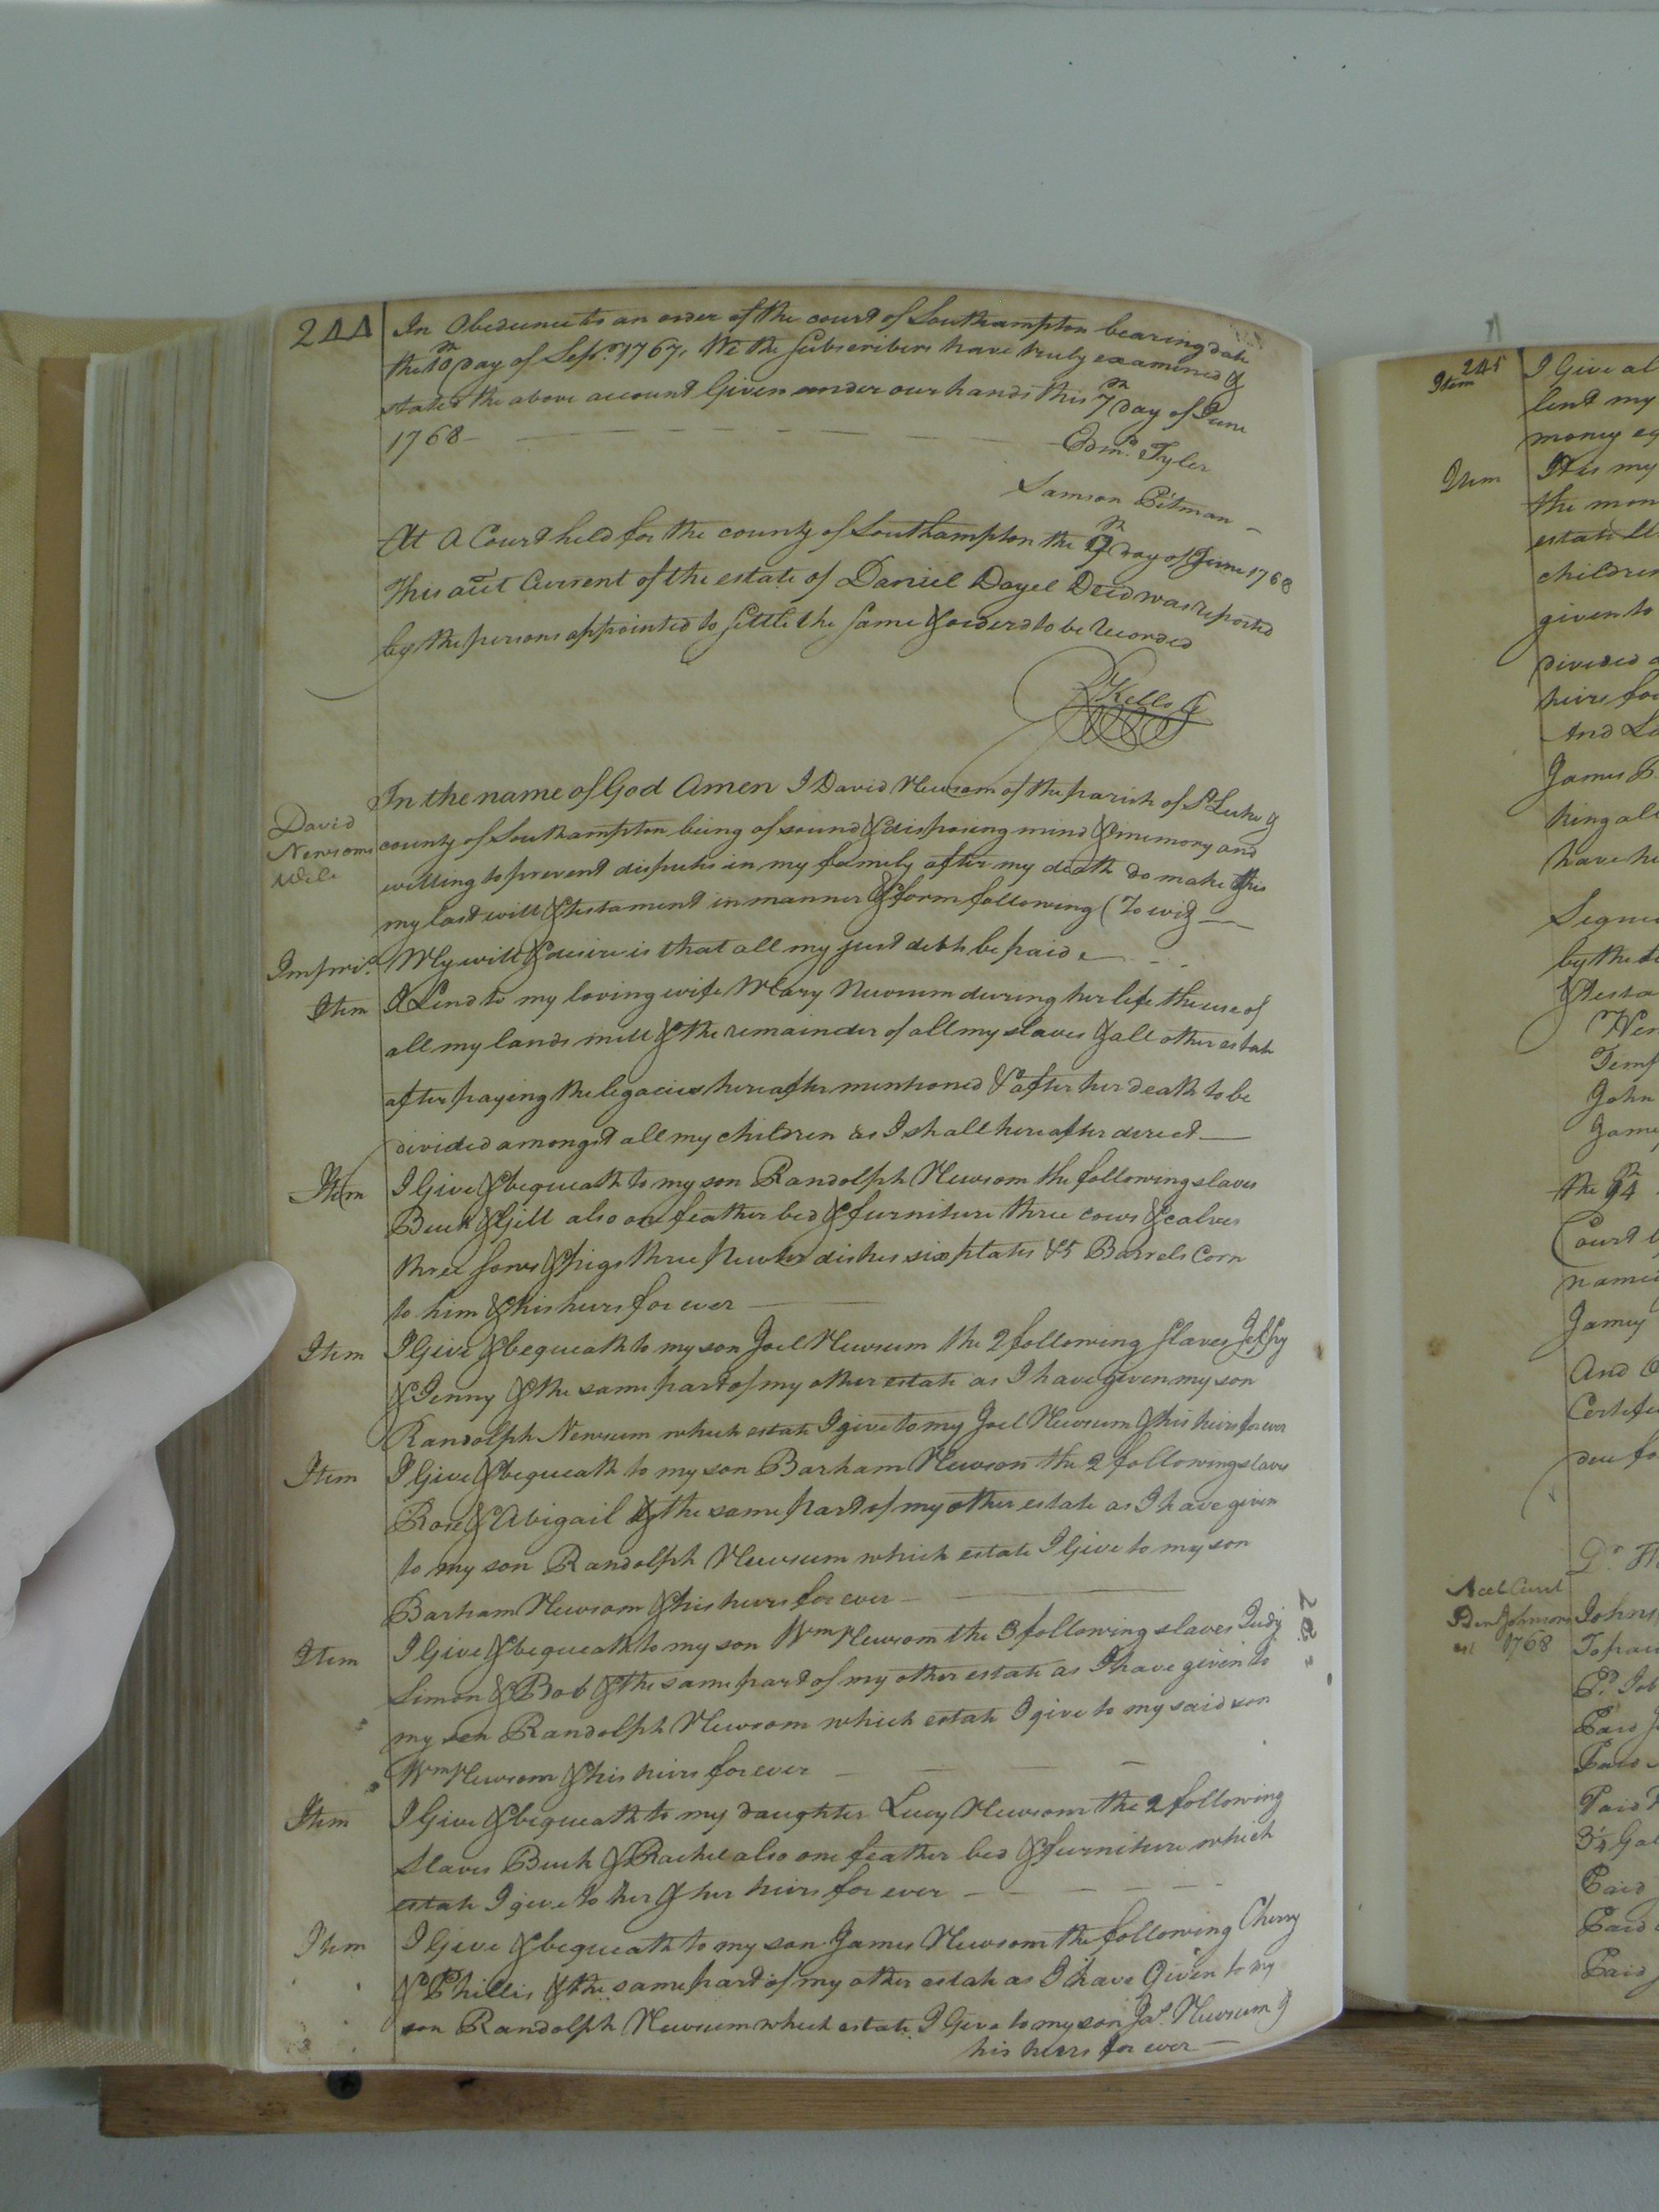 244
In Obedience to an order of the court of Southampton bearing date
the 10th day of Sept. 1767, We the Subscribers have truly examined &
stated the above account Given under our hands this 7th day of June
1768
Edmd. Tyler
Samson Pitman
At A Court held for the county of Southampton the 9th day of June 1768
This acct Current of the estate of Daniel Doyel Decd was reported
by the persons appointed to settle the same & orderd to be recorded
R Kello C
David
Newsoms
Will
In the name of God Amen I David Newsom of the parish of St Luke &
county of Southampton being of sound & disposing mind & memory and
willing to prevent disputes in my family after my death do make this
my last will & testament in manner & form following (To wit
Imprs. My will & desire is that all my just debts be paid
Item I Lend to my loving wife Mary Newsum during her life the use of
all my lands mill & the remainder of all my slaves & all other estate
after paying the legacies hereafter mentioned & after her death to be
divided amongst all my children as I shall hereafter direct
Item I Give & bequeath to my son Randolph Newsom the following slaves
Buck & Gill also one feather bed & furniture three cows & calves
three sows & pigs three pewter dishes six plates & 5 Barrels Corn
to him & his heirs for ever
Item I Give & bequeath to my son Joel Newsum the 2 following slaves
& Jenny & the same part of my other estate as I have given my son
Randolph Newsum which estate I give to my Joel Newsum & his heirs for ever
Item I Give & bequeath to my son Barham Newsom the 2 following slaves
Rose & Abigail & the same part of my other estate as I have given
to my son Randolph Newsum which estate I Give to my son
Barham Newsom & his heirs for ever
Item I Give & bequeath to my son Wm Newsom the 3 following slaves Judy
Simon & Bob & the same part of my other estate as I have given to
my son Randolph Newsom which estate I give to my said son
Wm Newsom & his heirs for ever
Item I Give & bequeath to my daughter Lucy Newsom the 2 following
Slaves Buck & Rachel also one feather bed & furniture which
estate I give to her & her heirs for ever
Item I Give & bequeath to my son James Newsom the following Cherry
& Phillis & the same part of my other estate as I have Given to my
son Randolph Newsum which estate I Give to my son Jas. Newsum &
his heirs for ever
245
Item I Give al
lend my
money eq
Item It is my
the mon
estate
children
given to
divided a
heirs for
And La
James B
king all
have he
Signe
by the te
& testa
Temp
John
Jame
the 14
Court
name
Jamey
And
Certifi
due fo
Acct Curt
Ben Johnsons
est 1768
Johns
To pai
Pd. Job
Paid J
Paid
Paid
3¼ Gal
Paid
Paid
Paid